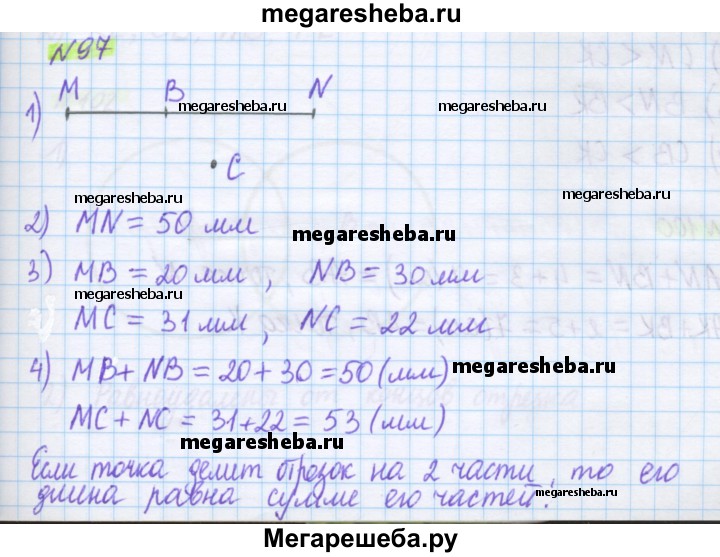 megaresheba.ru
N97
M B N
1)
megaresheba.ru megaresheba.ru
C
megaresheba.ru megaresheba.ru
2) MN = 50 мм
megaresheba.ru
3) MB = 20 мм, NB = 30 мм
MC = 31 мм, NC = 22 мм
4) MB + NB = 20 + 30 = 50 (мм)
megaresheba.ru
MC + NC = 31 + 22 = 53 (мм)
megaresheba.ru
Если точка делит отрезок на 2 части, то его
длина равна сумме его частей.
megaresheba.ru
Мегарешеба.ру